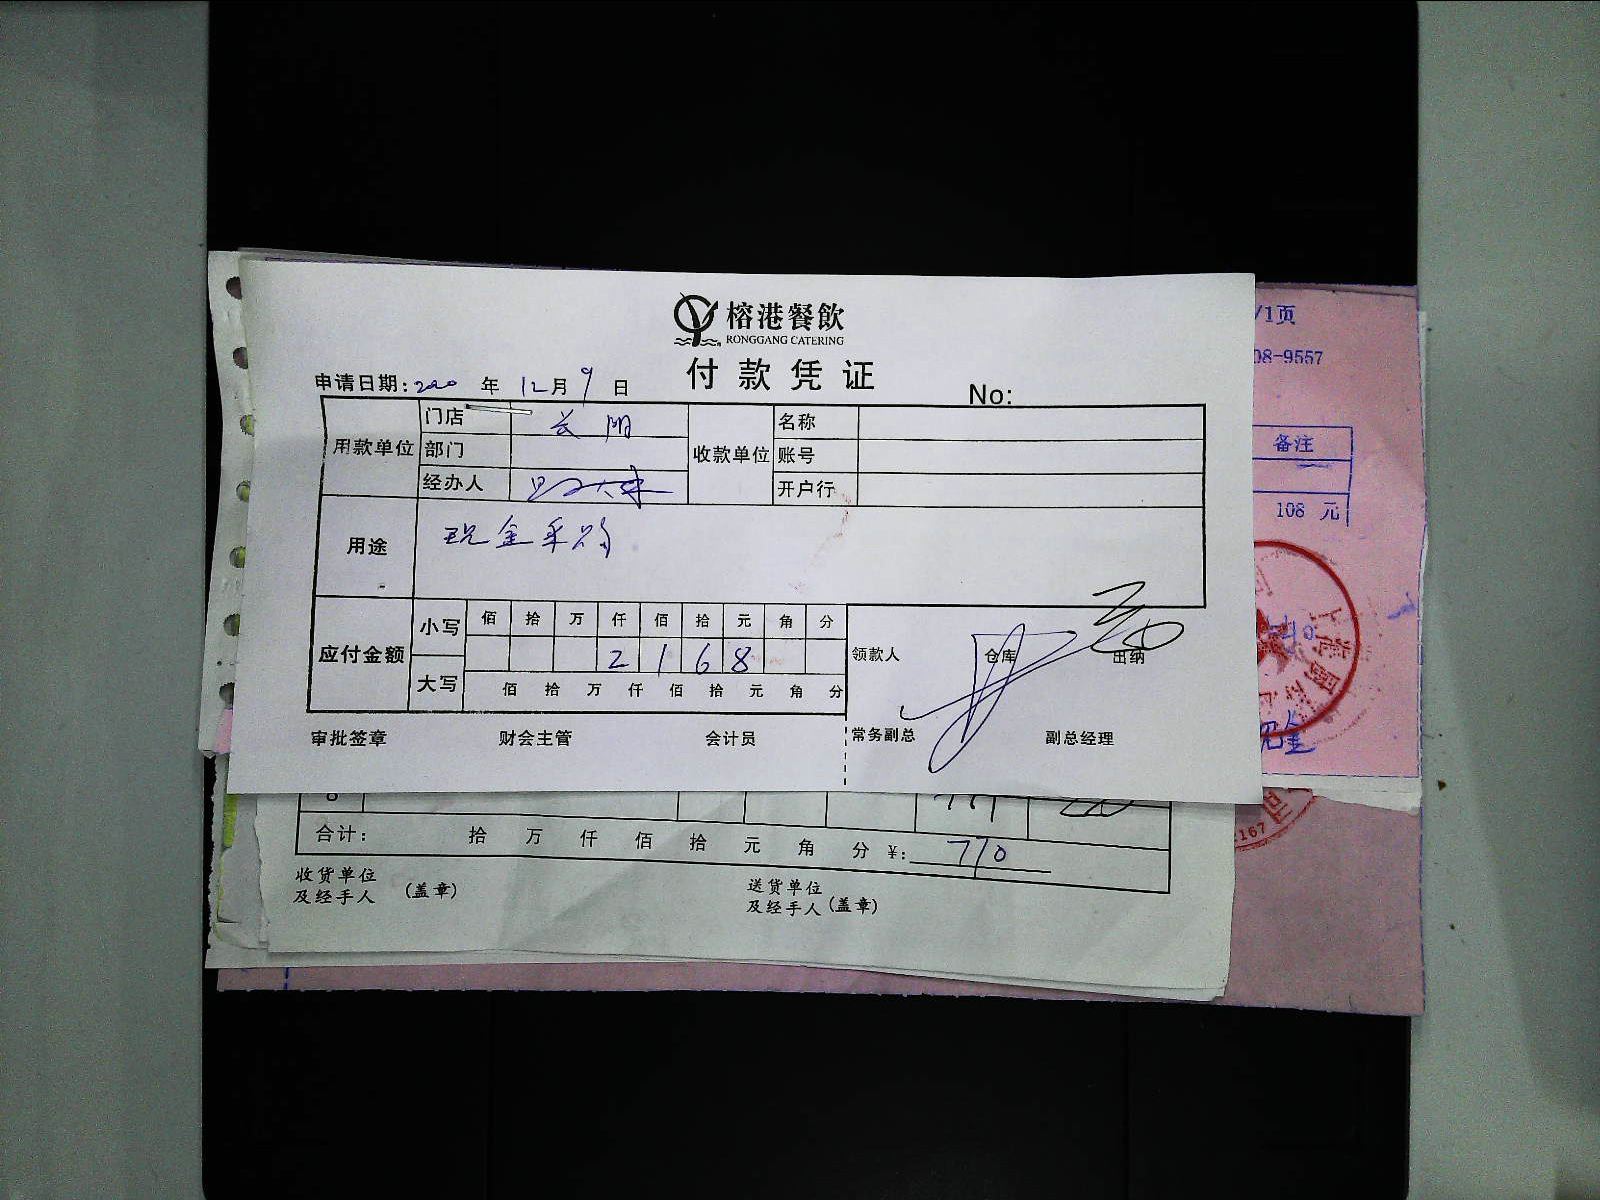 榕港餐飲
RONGGANG CATERING
付款凭证
申请日期: 年 12月 9 日 No:
用款单位 门店 收款单位 名称
部门 账号
经办人 开户行
用途 现金采购
应付金额 小写 佰 拾 万 仟 佰 拾 元 角 分
2 1 6 8
大写 佰 拾 万 仟 佰 拾 元 角 分
领款人 仓库 出纳
审批签章 财会主管 会计员 常务副总 副总经理
/1页
08-9557
备注
108 元
现金
2167
合计: 拾 万 仟 佰 拾 元 角 分 ¥: 770
收货单位 送货单位
及经手人 (盖章) 及经手人 (盖章)